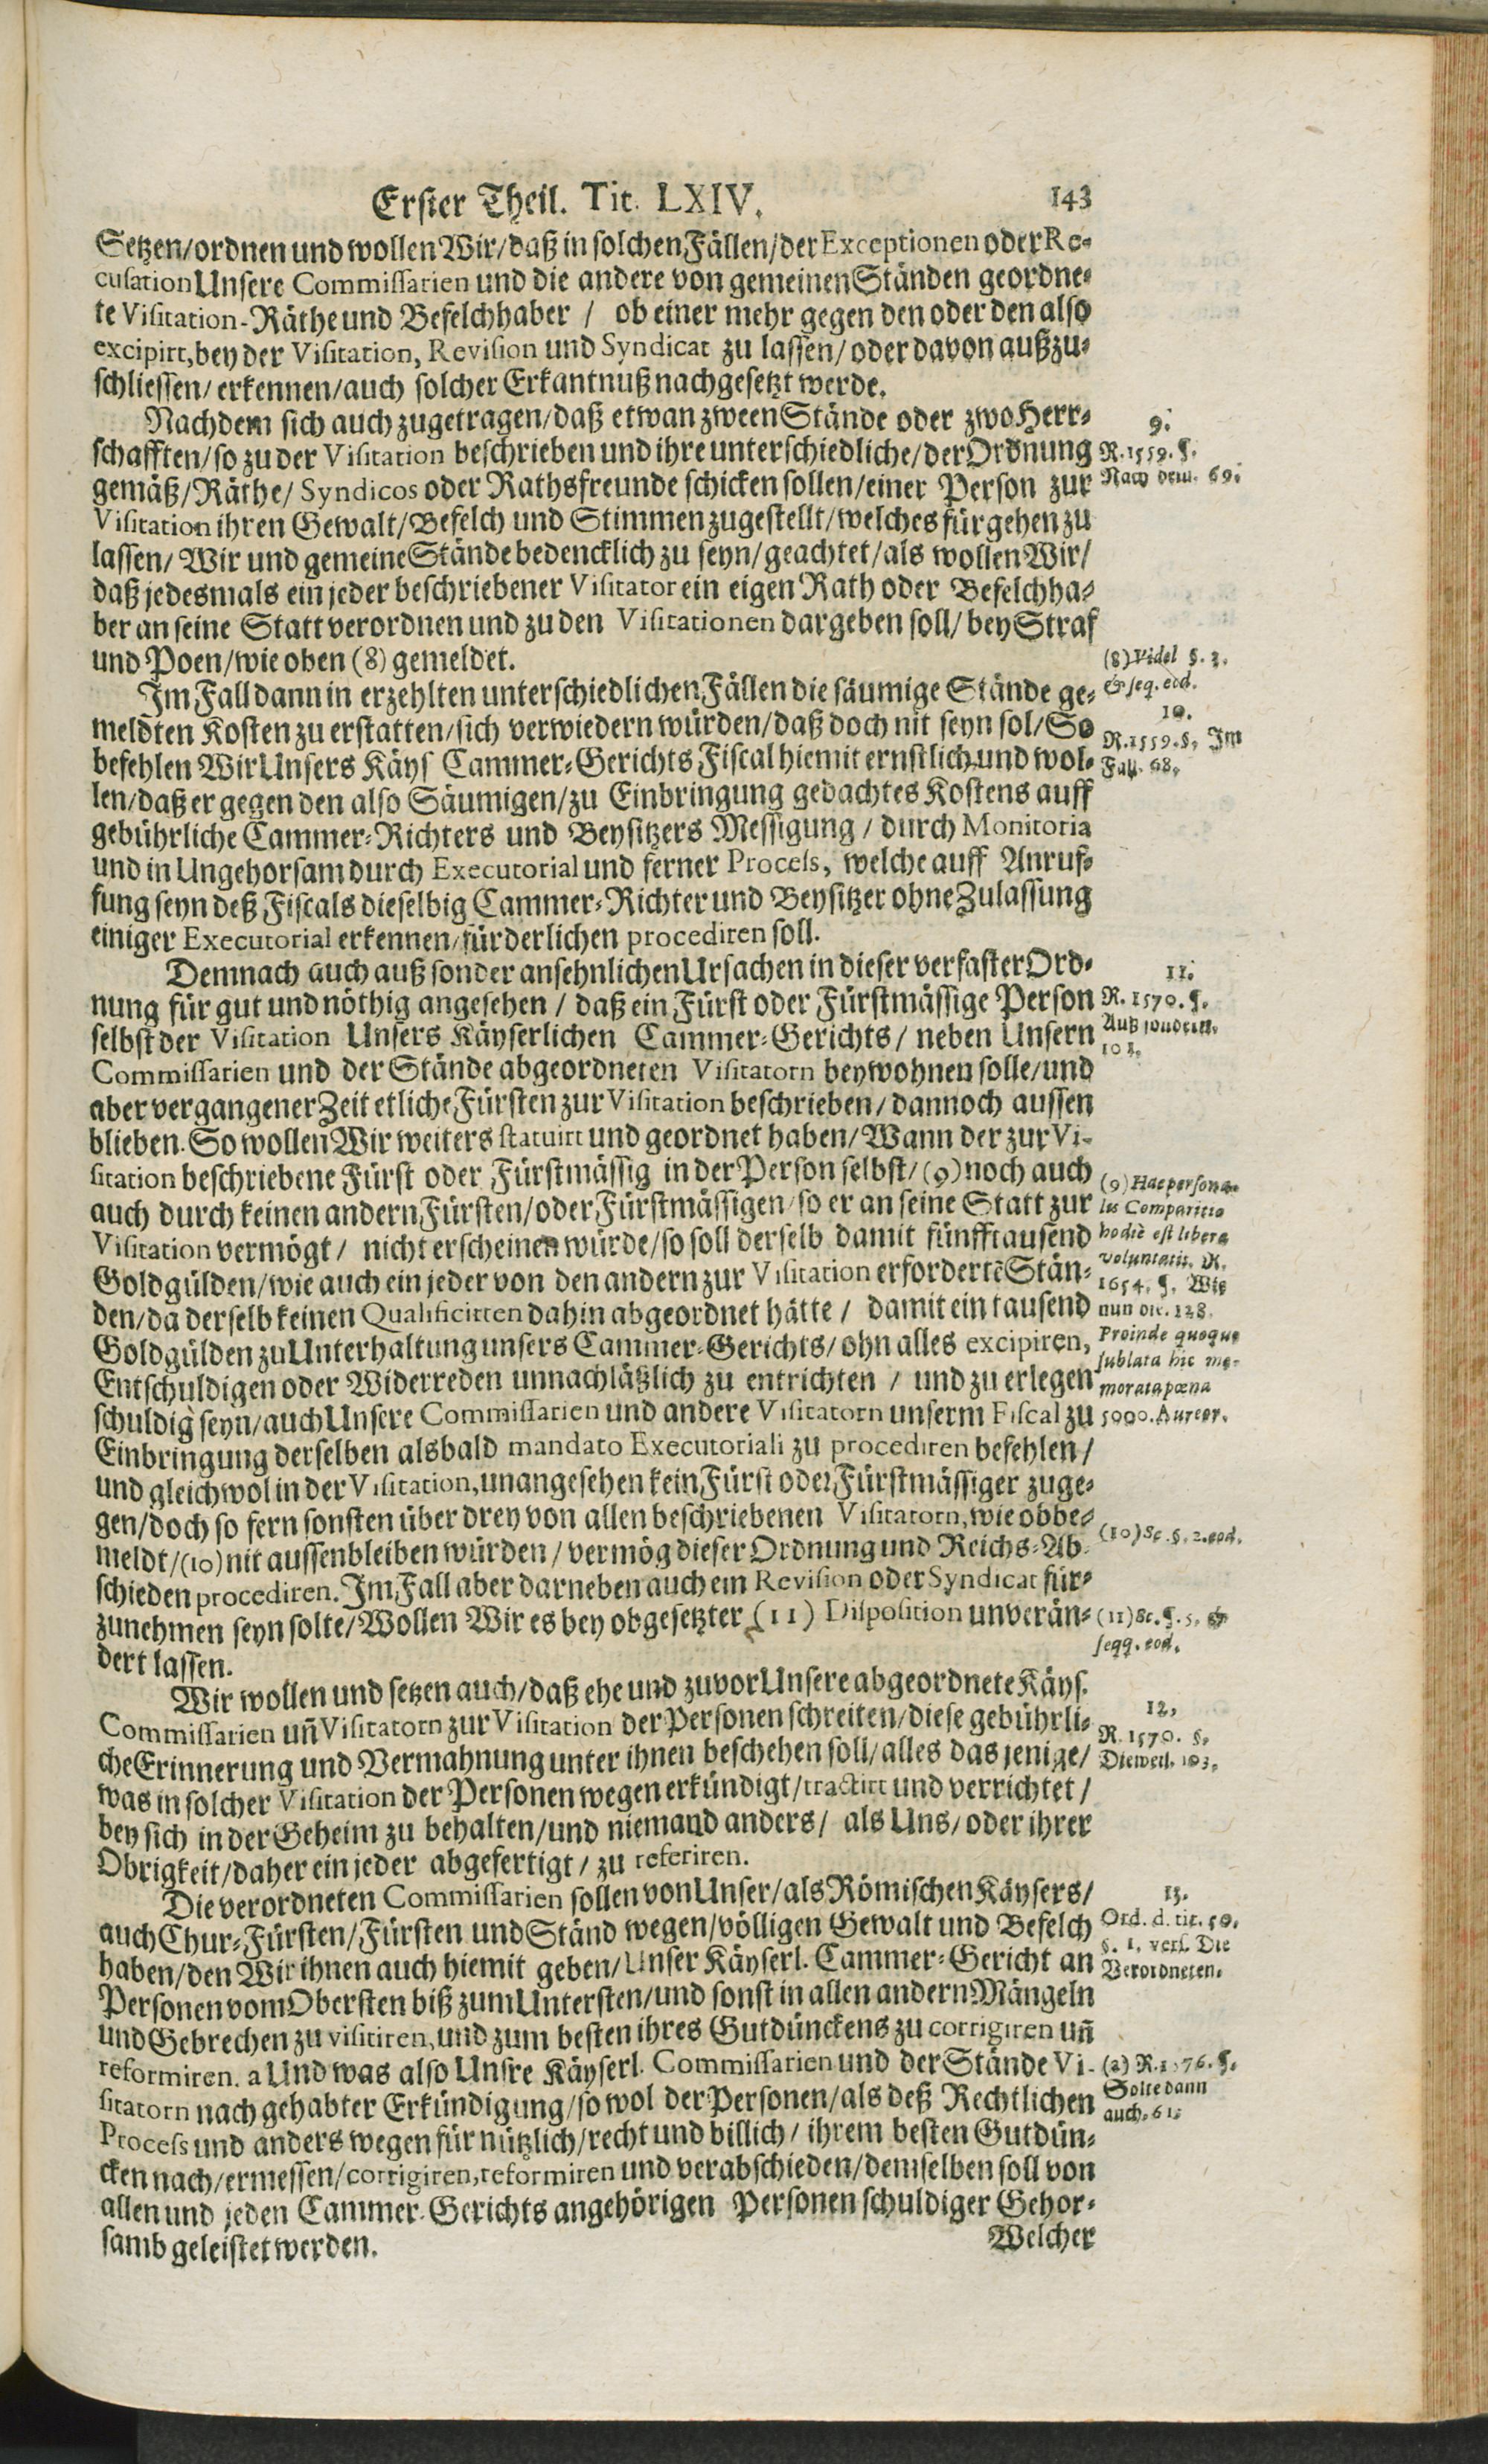 Erster Theil. Tit. LXIV. 143
Setzen/ordnen und wollen Wir/daß in solchen Fällen/der Exceptionen oder Re-
cusation Unsere Commissarien und die andere von gemeinen Ständen geordne-
te Visitation-Räthe und Befelchhaber / ob einer mehr gegen den oder den also
excipirt, bey der Visitation, Revision und Syndicat zu lassen/oder davon außzu-
schliessen/erkennen/auch solcher Erkantnuß nachgesetzt werde.
Nachdem sich auch zugetragen/daß etwan zween Stände oder zwo Herr-
schafften/so zu der Visitation beschrieben und ihre unterschiedliche/der Ordnung
gemäß/Räthe/Syndicos oder Rathsfreunde schicken sollen/einer Person zur
Visitation ihren Gewalt/Befelch und Stimmen zugestellt/welches fürgehen zu
lassen/Wir und gemeine Stände bedencklich zu seyn/geachtet/als wollen Wir/
daß jedesmals ein jeder beschriebener Visitator ein eigen Rath oder Befelchha-
ber an seine Statt verordnen und zu den Visitationen dargeben soll/bey Straf
und Poen/wie oben (8) gemeldet.
Im Fall dann in erzehlten unterschiedlichen Fällen die säumige Stände ge-
meldten Kosten zu erstatten/sich verwiedern würden/daß doch nit seyn sol/So
befehlen Wir Unsers Käys Cammer-Gerichts Fiscal hiemit ernstlich und wol-
len/daß er gegen den also Säumigen/zu Einbringung gedachtes Kostens auff
gebührliche Cammer-Richters und Beysitzers Messigung / durch Monitoria
und in Ungehorsam durch Executorial und ferner Process, welche auff Anruf-
fung seyn deß Fiscals dieselbig Cammer-Richter und Beysitzer ohne Zulassung
einiger Executorial erkennen/fürderlichen procediren soll.
Demnach auch auß sonder ansehnlichen Ursachen in dieser verfaster Ord-
nung für gut und nöthig angesehen / daß ein Fürst oder Fürstmässige Person
selbst der Visitation Unsers Käyserlichen Cammer-Gerichts/ neben Unsern
Commissarien und der Stände abgeordneten Visitatorn beywohnen solle/und
aber vergangener Zeit etliche Fürsten zur Visitation beschrieben/dannoch aussen
blieben. So wollen Wir weiters statuirt und geordnet haben/Wann der zur Vi-
sitation beschriebene Fürst oder Fürstmässig in der Person selbst/(9) noch auch
auch durch keinen andern Fürsten/oder Fürstmässigen/so er an seine Statt zur
Visitation vermögt/ nicht erscheinen würde/so soll derselb damit fünfftausend
Goldgülden/wie auch ein jeder von den andern zur Visitation erfordertē Stän-
den/da derselb keinen Qualificirten dahin abgeordnet hätte / damit ein tausend
Goldgülden zu Unterhaltung unsers Cammer-Gerichts/ohn alles excipiren,
Entschuldigen oder Widerreden unnachläßlich zu entrichten / und zu erlegen
schuldig seyn/auch Unsere Commissarien und andere Visitatorn unserm Fiscal zu
Einbringung derselben alsbald mandato Executoriali zu procediren befehlen/
und gleichwol in der Visitation, unangesehen kein Fürst oder Fürstmässiger zuge-
gen/doch so fern sonsten über drey von allen beschriebenen Visitatorn, wie obbe-
meldt/(10) nit aussenbleiben würden/vermög dieser Ordnung und Reichs-Ab-
schieden procediren. Im Fall aber darneben auch ein Revision oder Syndicat für-
zunehmen seyn solte/Wollen Wir es bey obgesetzter (11) Disposition unverän-
dert lassen.
Wir wollen und setzen auch/daß ehe und zuvor Unsere abgeordnete Käys.
Commissarien uñ Visitatorn zur Visitation der Personen schreiten/diese gebührli-
che Erinnerung und Vermahnung unter ihnen beschehen soll/alles das jenige/
was in solcher Visitation der Personen wegen erkündigt/tractirt und verrichtet/
bey sich in der Geheim zu behalten/und niemand anders/ als Uns/oder ihrer
Obrigkeit/daher ein jeder abgefertigt/zu referiren.
Die verordneten Commissarien sollen von Unser/als Römischen Käysers/
auch Chur-Fürsten/Fürsten und Ständ wegen/völligen Gewalt und Befelch
haben/den Wir ihnen auch hiemit geben/Unser Käyserl. Cammer-Gericht an
Personen vom Obersten biß zum Untersten/und sonst in allen andern Mängeln
und Gebrechen zu visitiren, und zum besten ihres Gutdünckens zu corrigiren uñ
reformiren. a Und was also Unsre Käyserl. Commissarien und der Stände Vi-
sitatorn nach gehabter Erkündigung/so wol der Personen/als deß Rechtlichen
Process und anders wegen für nützlich/recht und billich/ihrem besten Gutdün-
cken nach/ermessen/corrigiren, reformiren und verabschieden/demselben soll von
allen und jeden Cammer-Gerichts angehörigen Personen schuldiger Gehor-
samb geleistet werden.
Welcher
9.
R. 1559. §.
Nach dem. 69.
(8) Videl §. 3.
& seq. eod.
10.
R. 1559. §. Im
Fall. 68.
11.
R. 1570. §.
Auß sondern.
102.
(9) Hae persona-
les Comparitio
hodiè est libera
voluntatis. R.
1654. §. Wie
nun die. 128.
Proinde quoque
sublata hic me-
morata poena
5000. Aureor.
(10) Sc. §. 2. eod.
(11) Sc. §. 5. &
seqq. eod.
12.
R. 1570. §.
Dieweil. 103.
13.
Ord. d. tit. 50.
§. 1. vers. Die
Verordneten.
(a) R. 1576. §.
Solte dann
auch. 61.